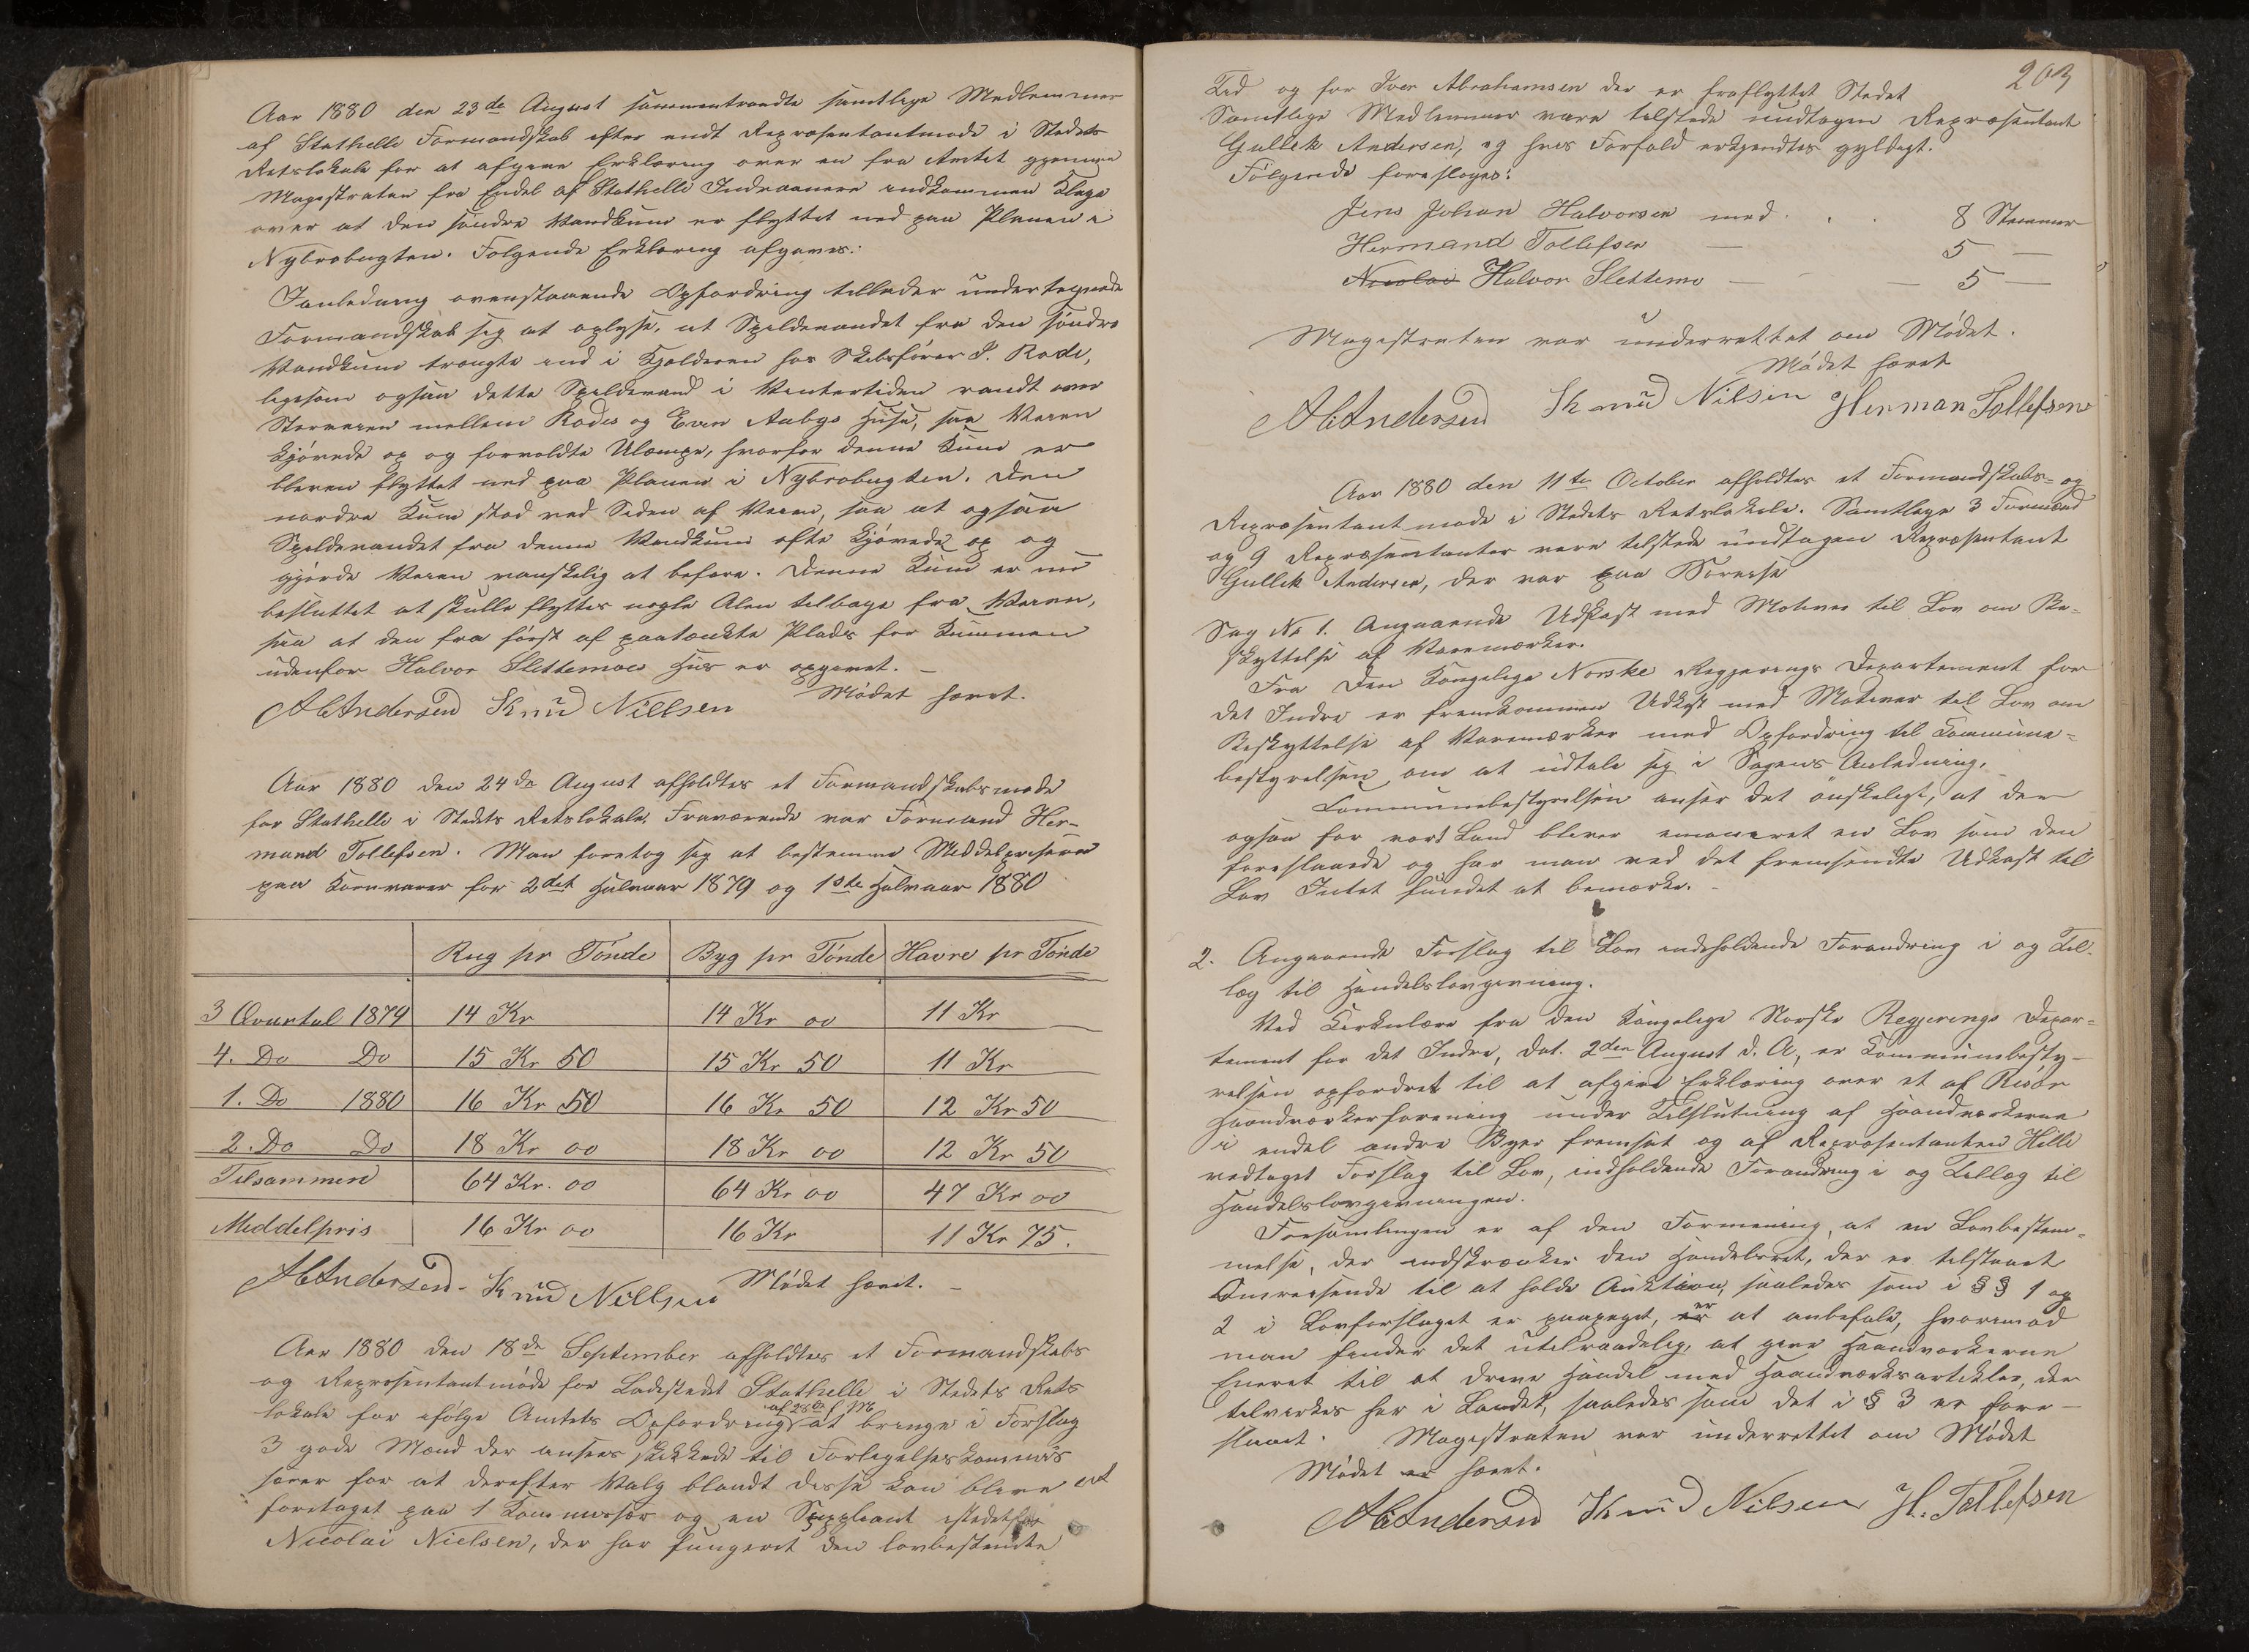 Aar 1880 den 23de August sammentraadte samtlige Medlemmer
af Stathelle Formandskab efter endt Repræsentantmøde i Stedets
Retslokale for at afgive Erklæring over en fra Amtet gjennem
Magistraten fra Endel af Stathelle Indvaanere indkommen Klage
over at den søndre Vandkum er flyttet ned paa Planen i
Nybrobugten. Følgende Erklæring afgaves:
I anledning ovenstaaende Opfordring tillader undertegnede
Formandskab sig at oplyse, at Spildevandet fra den søndre
Vandkum trængte ind i Kjælderen hos Skibsfører J. Rode,
ligesom ogsaa dette Spildevand i Vintertiden randt over
Storveien mellem Rodes og Even Aabys Huse, saa Veien
kjøvede op og forvoldte Ulempe, hvorfor denne Kum er
bleven flyttet ned paa Planen i Nybrobugten. Den
nordre Kum stod ved Siden af Veien, saa at ogsaa
Spildevandet fra denne Vandkum ofte kjøvede op og
gjorde Veien vanskelig at befare. Denne Kum er nu
besluttet at skulle flyttes nogle Alen tilbage fra Veien,
saa at den fra først af paatænkte Plads for Kummen
udenfor Halvor Slettemoes Hus er opgivet. –
Mødet hævet.
A Andersen Knud Nillsen
Aar 1880 den 24de August afholdtes et Formandskabsmøde
for Stathelle i Stedets Retslokale. Fraværende var Formand Her-
mand Tollefsen. Man foretog sig at bestemme Middelprisene
paa Kornvarer for 2det Halvaar 1879 og 1ste Halvaar 1880
Rug pr Tønde Byg pr Tønde Havre pr Tønde
3 Qvartal 1879 14 Kr 14 Kr 00 11 Kr
4. Do Do 15 Kr 50 15 Kr 50 11 Kr
1. Do 1880 16 Kr 50 16 Kr 50 12 Kr 50
2. Do Do 18 Kr 00 18 Kr 00 12 Kr 50
Tilsammen 64 Kr. 00 64 Kr 00 47 Kr 00
Middelpris 16 Kr 00 16 Kr 11 Kr 75.
A Andersen - Knud Nillsen Mødet hævet. –
Aar 1880 den 18de September afholdtes et Formandskabs
og Repræsentantmøde for Ladestedet Stathelle i Stedets Rets
lokale for ifølge Amtets Opfordring af 28de f M at bringe i Forslag
3 gode Mænd der ansees skikkede til Forligelseskommis
særer for at derefter Valg blandt disse kan blive et
foretaget paa 1 Kommissær og en Suppleant istedetfor
Nicolai Nielsen, der har fungeret den lovbestemte
203
Tid og for Iver Abrahamsen der er fraflyttet Stedet
Samtlige Medlemmer vare tilstede undtagen Repræsentant
Gullik Andersen, og hvis Forfald erkjendtes gyldigt.
Følgende foresloges:
Jens Johan Halvorsen med . . . 8 Stemmer
Hermand Tollefsen — 5 —
Nicolai Halvor Slettemo — — 5 —
Magistraten var underrettet om Mødet.
Mødet hævet
A Andersen Knud Nilsen Herman Tollefsen
Aar 1880 den 11te October afholdtes et Formandskabs= og
Repræsentantmøde i Stedets Retslokale. Samtlige 3 Formænd
og 9 Repræsentanter vare tilstede undtagen Repræsentant
Gullik Andersen, der var paa Søreise
Sag No 1. Angaaende Udkast med Motiver til Lov om Be-
skyttelse af Varemærker.
Fra Den Kongelige Norske Regjerings Departement for
det Indre er fremkommen Udkast med Motiver til Lov om
Beskyttelse af Varemærker med Opfordring til Kommune=
bestyrelsen om at udtale sig i Sagens Anledning.
Communebestyrelsen anser det ønskeligt, at der
ogsaa for vort Land bliver emaneret en Lov som den
foreslaaede og har man ved det fremsendte Udkast til
Lov Intet fundet at bemærke. –
2. Angaaende Forslag til Lov indeholdende Forandring i og Til-
læg til Handelslovgivning.
Ved Cirkulære fra den Kongelige Norske Regjerings Depar=
tement for det Indre, dat. 2den August d. A., er Kommunebesty-
relsen opfordret til at afgive Erklæring over et af Risør
Haandværkerforening under Tilslutning af Haandværkerne
i endel andre Byer fremsat og af Repræsentanten Hille
vedtaget Forslag til Lov, indholdende Forandring i og Tillæg til
Handelslovgivningen.
Forsamlingen er af den Formening, at en Lovbestem=
melse, der indskrænker den Handelsret, der er tilstaaet
Omreisende til at holde Auktion, saaledes som i §§ 1 og
2 i Lovforslaget er paapeget, er at anbefale, hvorimod
man finder det utilraadelig, at give Haandværkerne
Eneret til at drive Handel med Haandværksartikler, der
tilvirkes her i Landet, saaledes som det i § 3 er fore-
slaaet. Magistraten var underrettet om Mødet
Mødet er hævet.
A Andersen Knud Nilsen H. Tollefsen